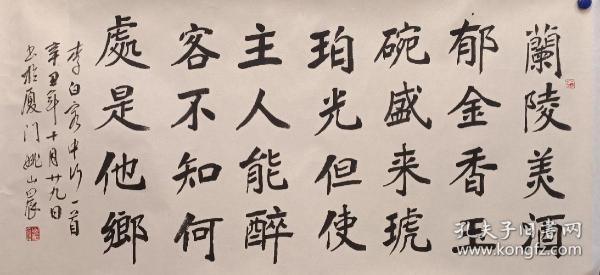 蘭陵美酒
郁金香玉
碗盛来琥
珀光但使
主人能醉
客不知何
處是他鄉
李白客中行一首
辛丑年十月廿九日
书於厦门姚山晨
孔夫子旧书网
kongfz.com